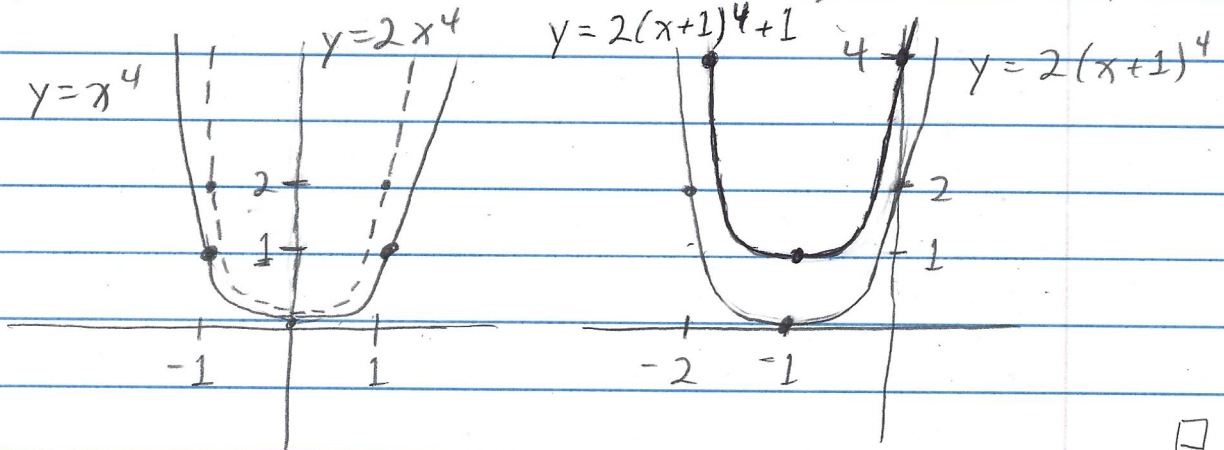 y = 2x⁴
y = x⁴
2
1
-1
1
y = 2(x+1)⁴+1
4
y = 2(x+1)⁴
2
1
-2
-1